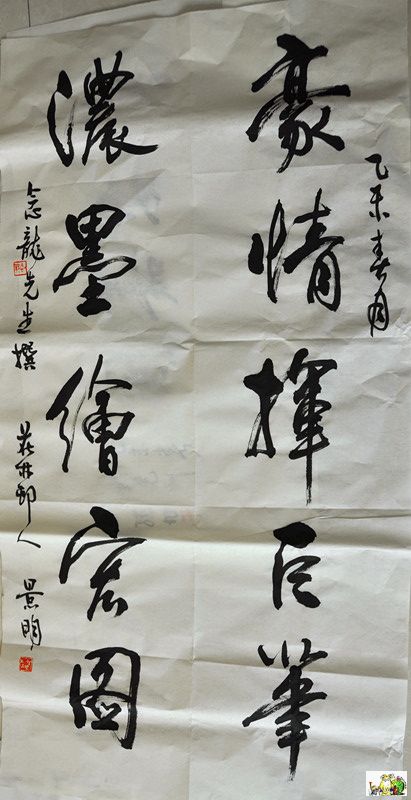 乙未春月
豪情揮巨筆
濃墨繪宏圖
念龍先生撰 荘林邨人 景明